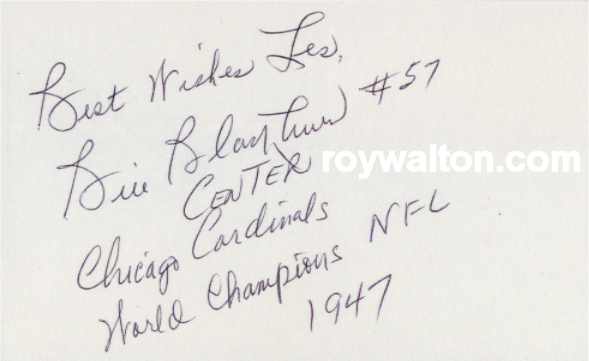 Best Wishes Les,
Bill Blackburn #57
CENTER
roywalton.com
Chicago Cardinals
World Champions NFL
1947